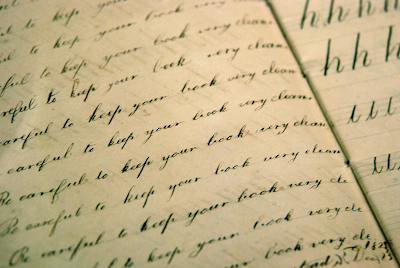 to keep your book very clean
ful to keep your book very clean
ful to keep your book very clean
reful to keep your book very clean
careful to keep your book very clean
careful to keep your book very clean
Be careful to keep your book very clean
Be careful to keep your book very clean
Be careful to keep your book very cle
careful to keep your book very cle
to keep your book very cle
h h h h
h h h
t t t
t t